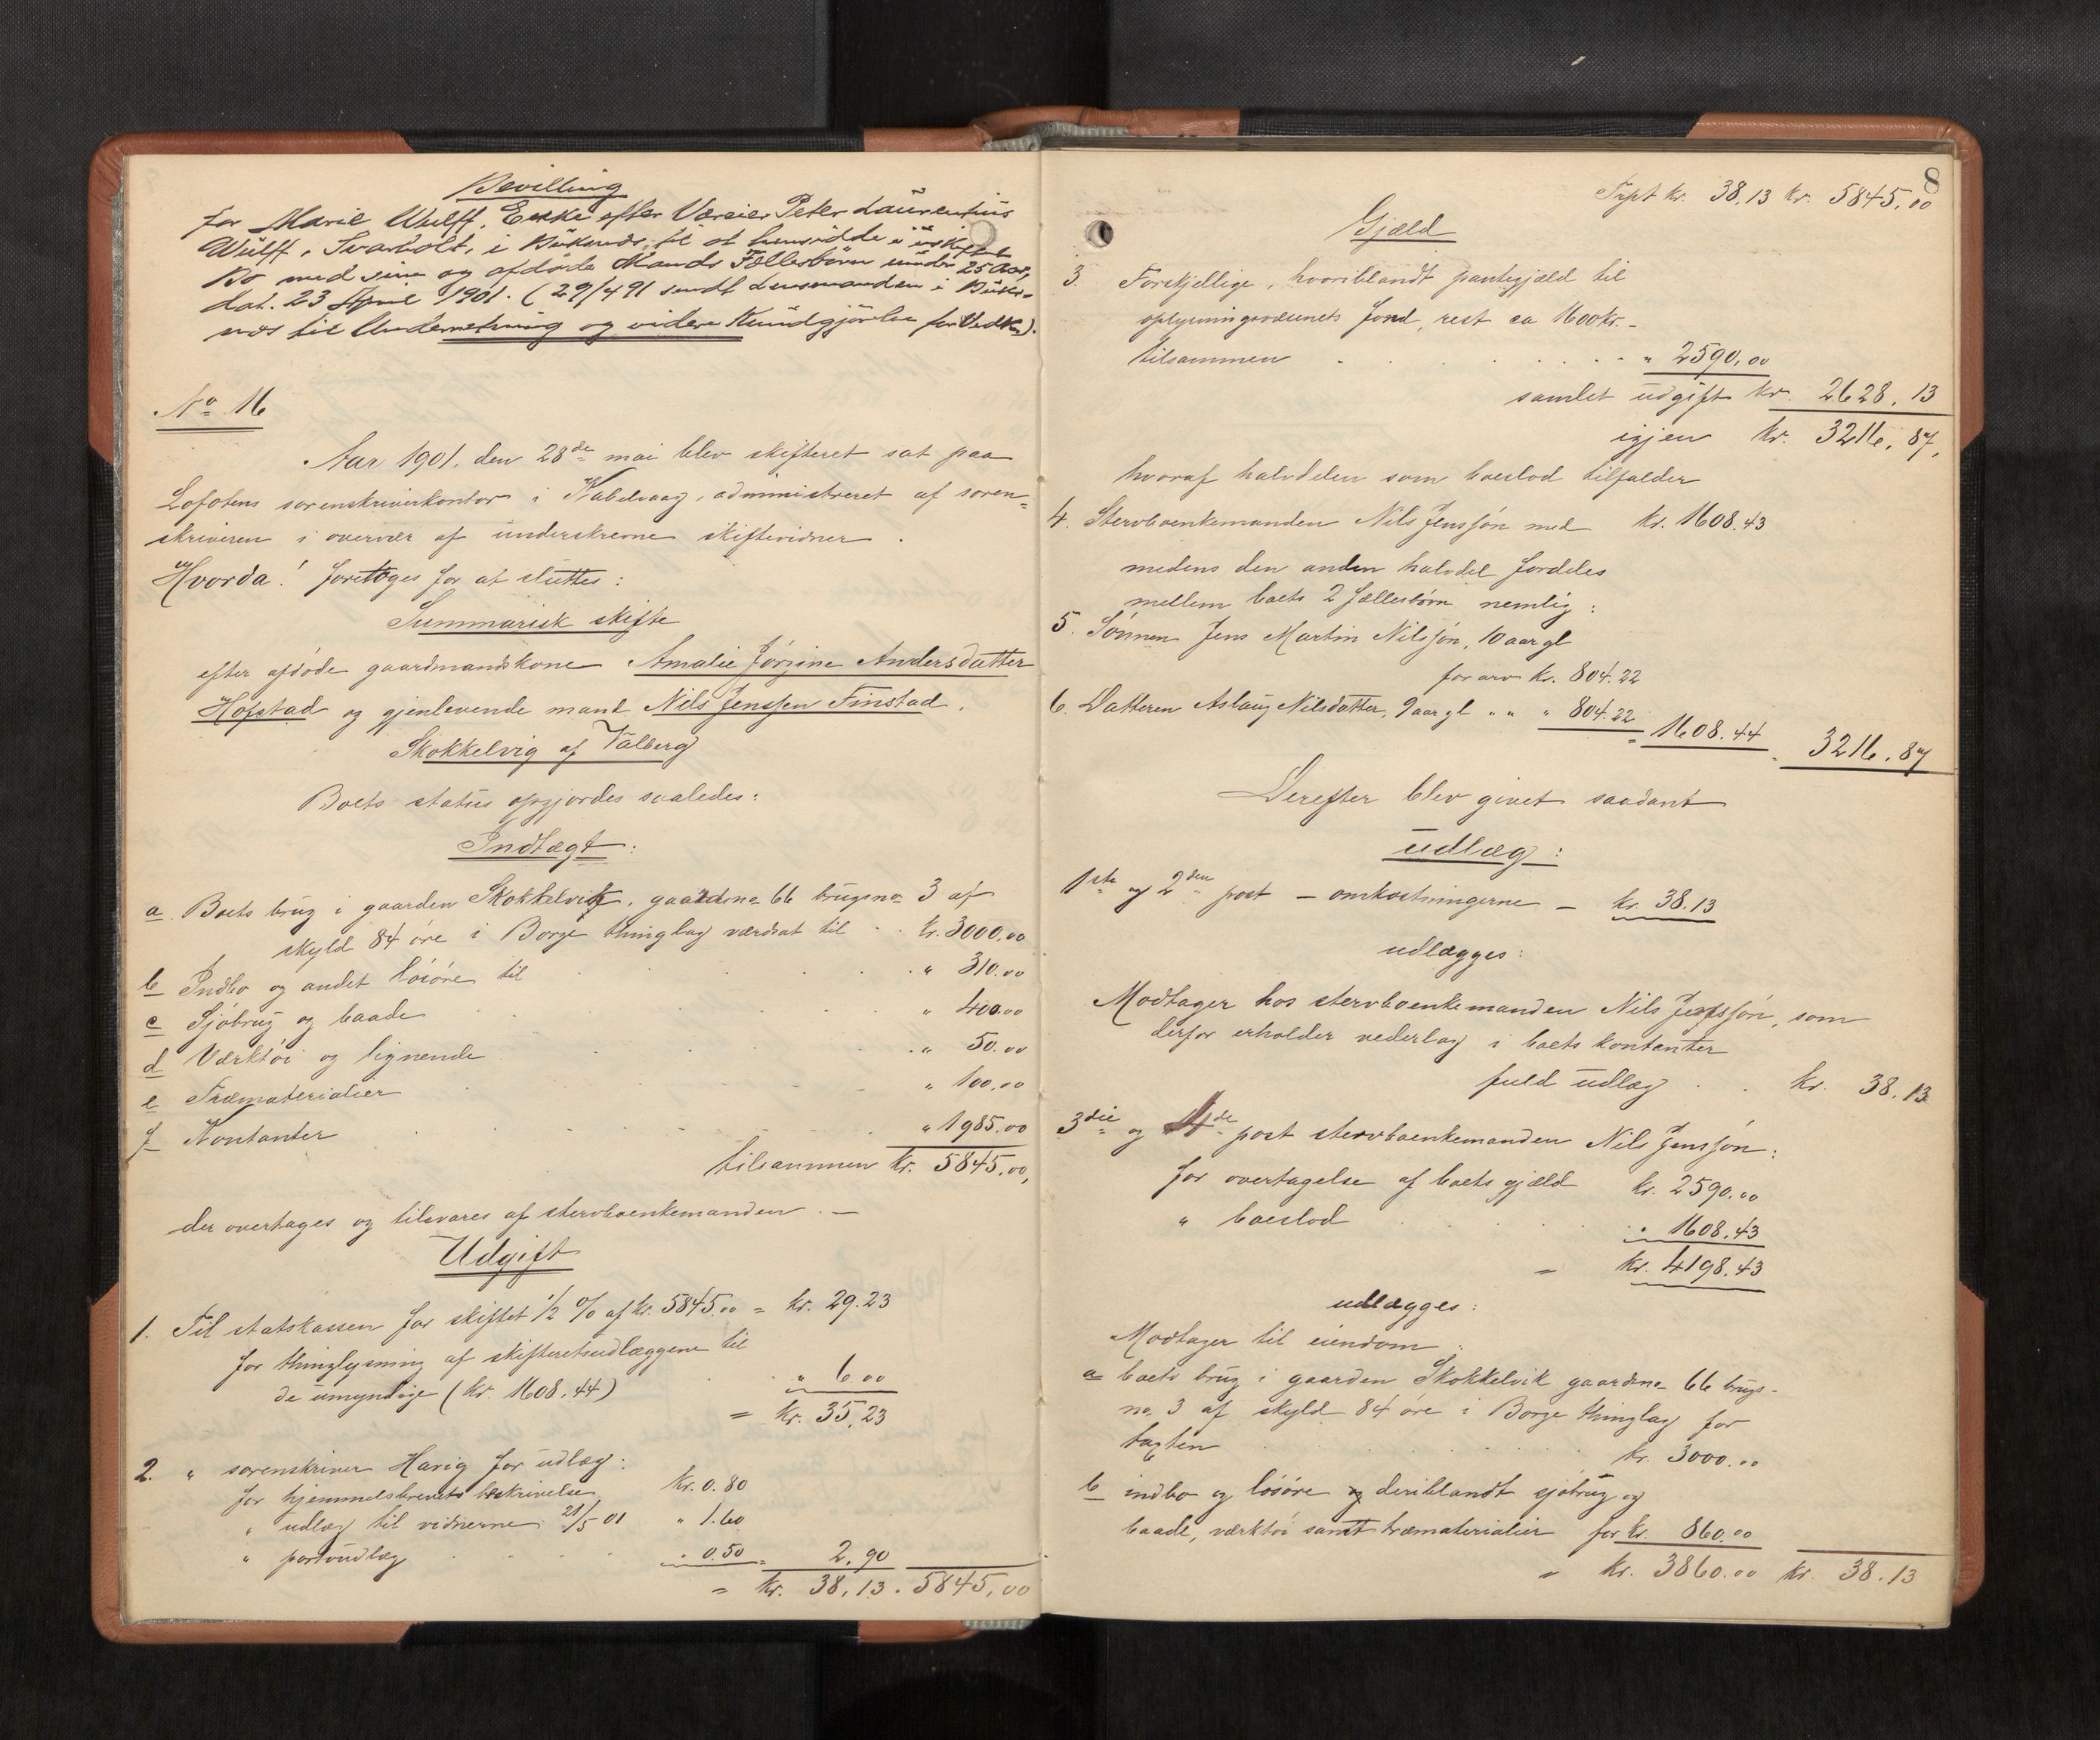 Bevilling
for Marie Wulff, Enke efter Væreier Peter Laurentius
Wulff, Svarholt, i Buksnæs, til at hensidde i uskiftet
Bo med sine og afdøde Mands Fællesbørn under 25 Aar,
dat. 23 April 1901. (29/4 91 sendt Lensmanden i Buks-
næs til Underretning og videre Kundgjørelse for Vedk.).
No 16
Aar 1901, den 28de mai blev skifteret sat paa
Lofotens sorenskriverkontor i Kabelvaag, administreret af soren=
skriveren i overvær af underskrevne skiftevidner.
Hvorda! foretoges for at sluttes:
Summarisk skifte
efter afdøde gaardmandskone Amalie Jørgine Andersdatter
Hofstad og gjenlevende mand Nils Jenssen Finstad,
Skokkelvig af Valberg
Boets status opgjordes saaledes:
Indtægt:
a. Boets brug i gaarden Skokkelvik, gaardsno 66 brugsno 3 af
skyld 84 øre i Borge thinglag værdsat til . . kr. 3000.00
b Indbo og andet løsøre til . . . . " 310.00
c Sjøbrug og baade . . . . " 400.00
d Værktøi og lignende . . . . " 50.00
e Træmaterialier . . . . " 100.00
f Kontanter . . . . " 1985.00
tilsammen kr. 5845.00,
der overtages og tilsvares af stervboenkemanden. —
Udgift
1. Til statskassen for skiftet 1/2 % af kr. 5845.00 = kr. 29.23
for thinglysning af skifteretsudlæggene til
de umyndige (kr. 1608.44) . . " 6.00
= kr. 35.23
2. " sorenskriver Harig for udlæg:
for hjemmelsbrevets beskrivelse kr. 0.80
" udlæg til vidnerne 28/5 01 " 1.60
" portoudlæg . . . . " 0.50 = 2.90
= kr. 38.13. 5845.00
8
Flyt kr. 38.13 kr. 5845.00
Gjæld
3. Forskjellige, hvoriblandt pantegjæld til
oplysningsvæsenets fond, rest ca 1600 kr. -
tilsammen . . . . " 2590.00
samlet udgift kr. 2628.13
igjen kr. 3216.87,
hvoraf halvdelen som boeslod tilfalder
4. Stervboenkemanden Nils Jenssøn med kr. 1608.43
medens den anden halvdel fordeles
mellem boets 2 fællesbørn nemlig:
5. Sønnen Jens Martin Nilssøn, 10 aar gl
for arv kr. 804.22
6. Datteren Aslaug Nilsdatter, 9 aar gl " " " 804.22 = 1608.44 = 3216.87
Derefter blev givet saadant
udlæg:
1ste og 2den post — omkostningerne — kr. 38.13
udlægges:
Modtager hos stervboenkemanden Nils Jenssøn, som
derfor erholder vederlag i boets kontanter
fuld udlæg . . kr. 38.13
3die og 4de post stervboenkemanden Nils Jenssøn:
for overtagelse af boets gjæld kr. 2590.00
" boeslod . . . . " 1608.43
= kr. 4198.43
udlægges:
Modtager til eiendom:
a boets brug i gaarden Skokkelvik gaardsno 66 brugs-
no 3 af skyld 84 øre i Borge thinglag for
taxten . . . . kr. 3000.00
b indbo og løsøre og deriblandt sjøbrug og
baade, værktøi samt træmaterialier for kr. 860.00
= kr. 3860.00 kr. 38.13